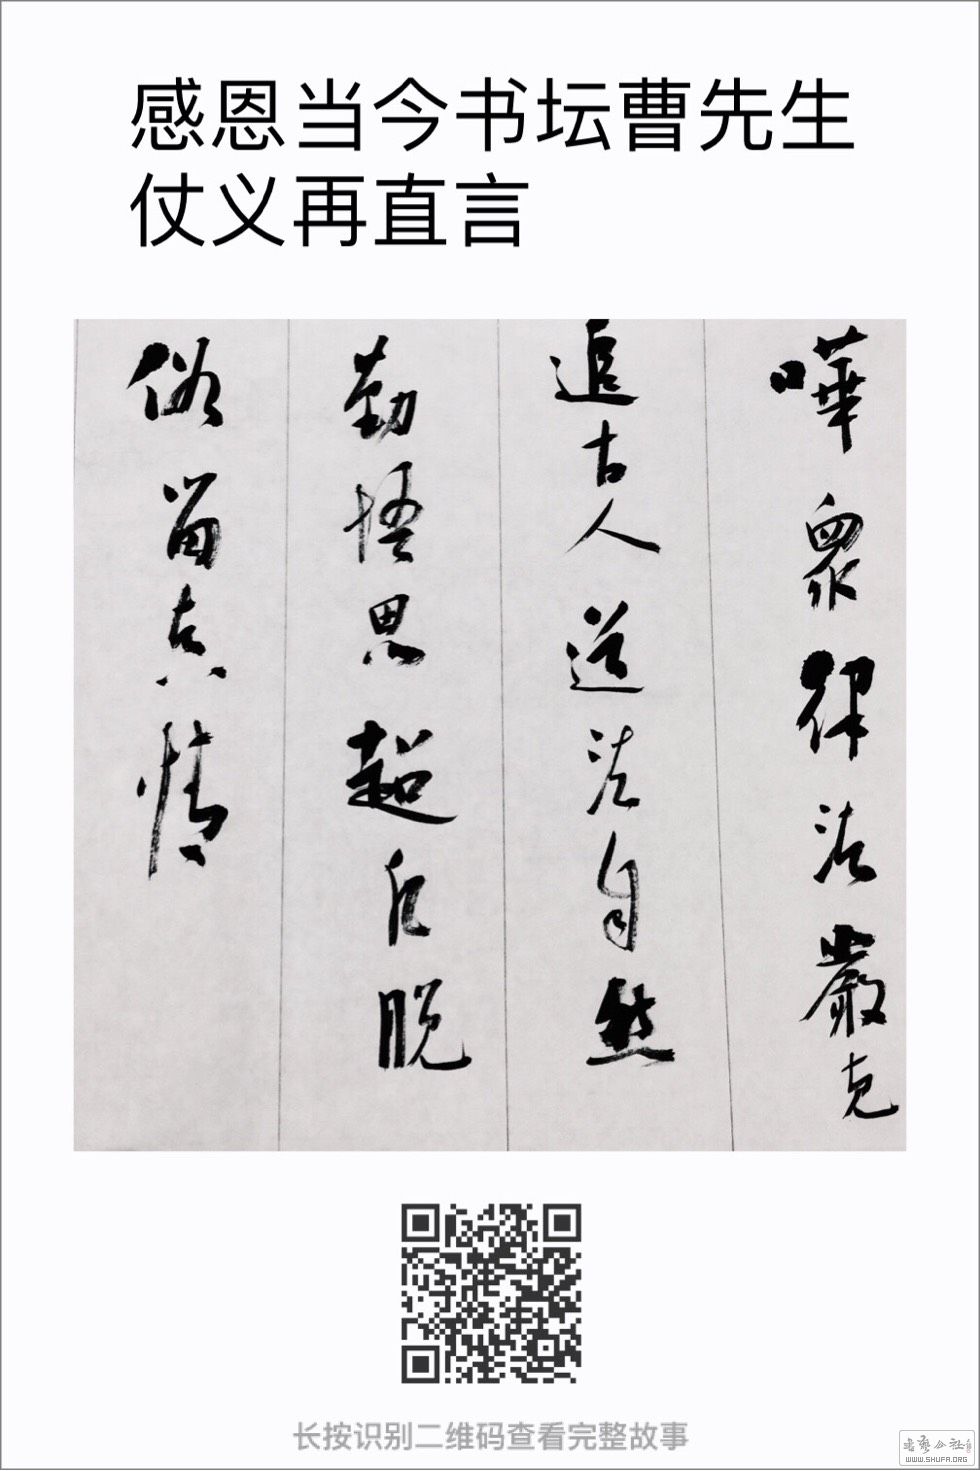 感恩当今书坛曹先生
仗义再直言
嘩眾律法嚴克
追古人道法自然
勤悟思超凡脱
俗留真情
长按识别二维码查看完整故事
书艺公社
WWW.SHUFA.ORG